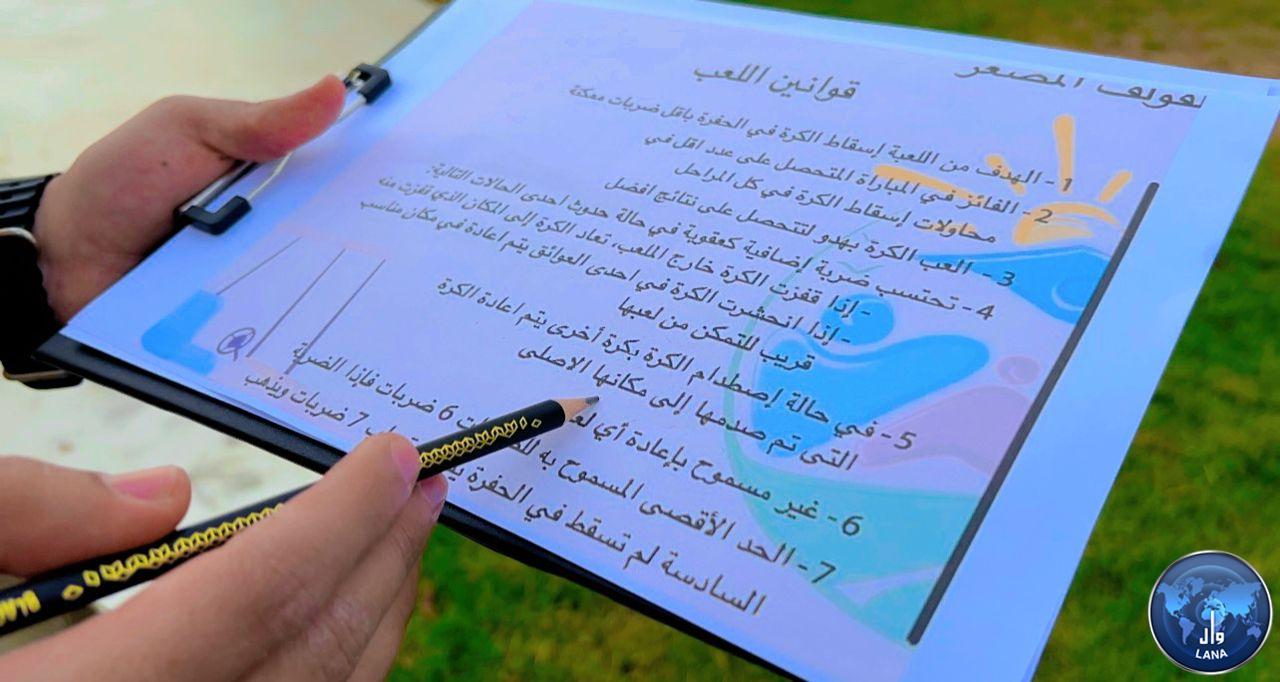 المصغر
قوانين اللعب
1 - الهدف من اللعبة إسقاط الكرة في الحفرة باقل ضربات ممكنة
2 - الفائز في المباراة المتحصل على عدد اقل في
محاولات إسقاط الكرة في كل المراحل
3 - العب الكرة بهدو لتتحصل على نتائج افضل
4 - تحتسب ضربة إضافية كعقوبة في حالة حدوث احدى الحالات التالية:
- إذا قفزت الكرة خارج الملعب، تعاد الكرة إلى المكان الذي نقزت منه
- إذا انحشرت الكرة في احدى العوائق يتم اعادة في مكان مناسب
قريب للتمكن من لعبها
5 - في حالة إصطدام الكرة بكرة أخرى يتم اعادة الكرة
التى تم صدمها إلى مكانها الاصلى
6 - غير مسموح بإعادة أي
7 - الحد الأقصى المسموح به 6 ضربات فإذا الضربة
السادسة لم تسقط في الحفرة 7 ضربات ويذهب
وال
LANA